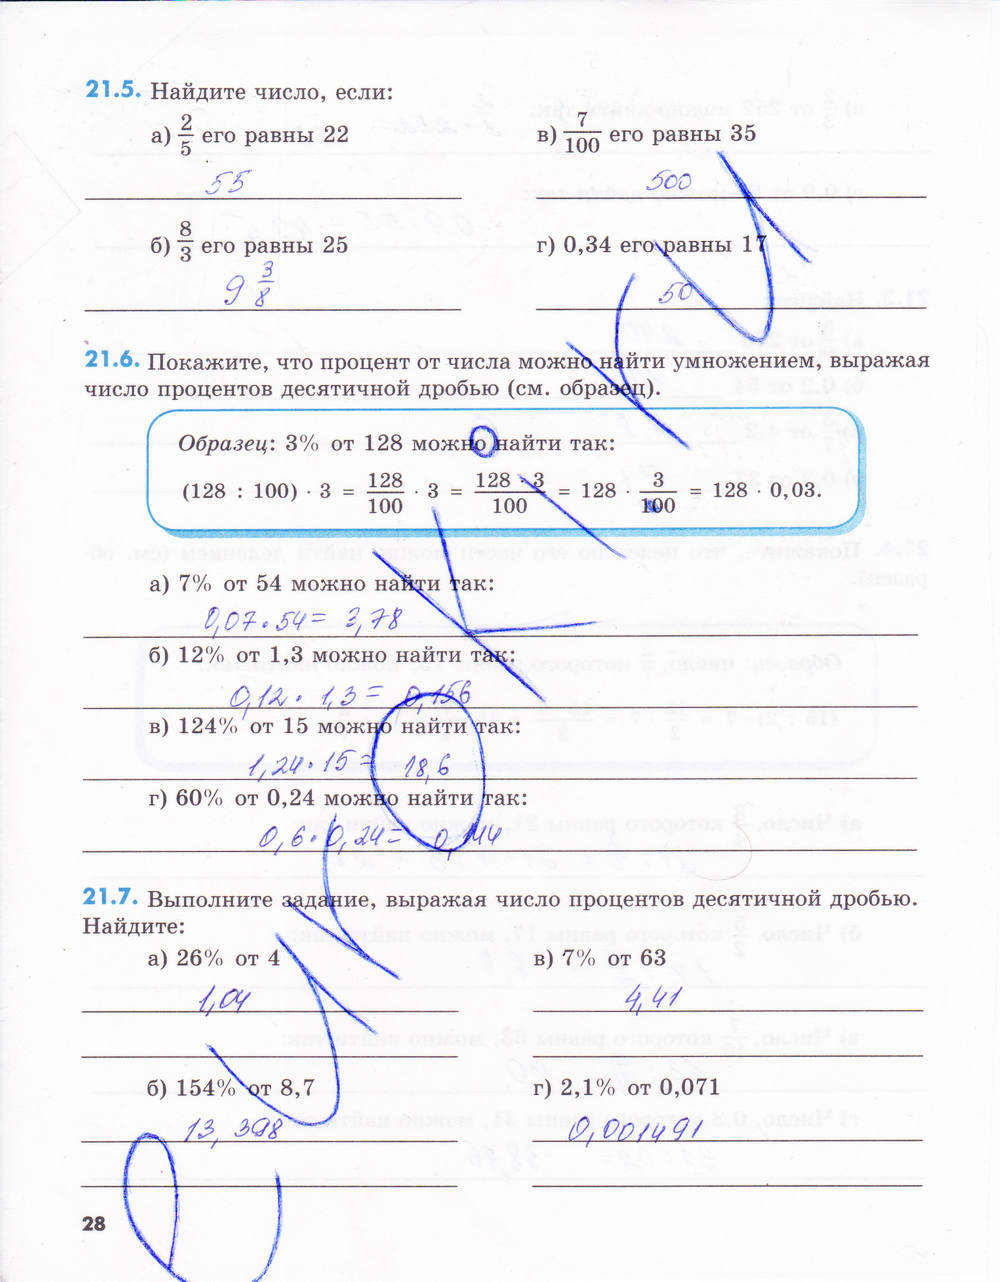 21.5. Найдите число, если:
а) 2/5 его равны 22
в) 7/100 его равны 35
55
500
б) 8/3 его равны 25
г) 0,34 его равны 17
9 3/8
50
21.6. Покажите, что процент от числа можно найти умножением, выражая
число процентов десятичной дробью (см. образец).
Образец: 3% от 128 можно найти так:
(128 : 100) · 3 = 128/100 · 3 = 128 · 3/100 = 128 · 3/100 = 128 · 0,03.
а) 7% от 54 можно найти так:
0,07 · 54 = 3,78
б) 12% от 1,3 можно найти так:
0,12 · 1,3 = 0,156
в) 124% от 15 можно найти так:
1,24 · 15 = 18,6
г) 60% от 0,24 можно найти так:
0,6 · 0,24 = 0,144
21.7. Выполните задание, выражая число процентов десятичной дробью.
Найдите:
а) 26% от 4
в) 7% от 63
1,04
4,41
б) 154% от 8,7
г) 2,1% от 0,071
13,398
0,001491
28